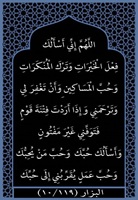 اللَّهُمَّ إِنِّي أَسْأَلُكَ
فِعْلَ الْخَيْرَاتِ وَتَرْكَ الْمُنْكَرَاتِ
وَحُبَّ الْمَسَاكِينِ وَأَنْ تَغْفِرَ لِي
وَتَرْحَمَنِي وَإِذَا أَرَدْتَ فِتْنَةَ قَوْمٍ
فَتَوَفَّنِي غَيْرَ مَفْتُونٍ
وَأَسْأَلُكَ حُبَّكَ وَحُبَّ مَنْ يُحِبُّكَ
وَحُبَّ عَمَلٍ يُقَرِّبُنِي إِلَى حُبِّكَ
البزار (١٠/١١٩)